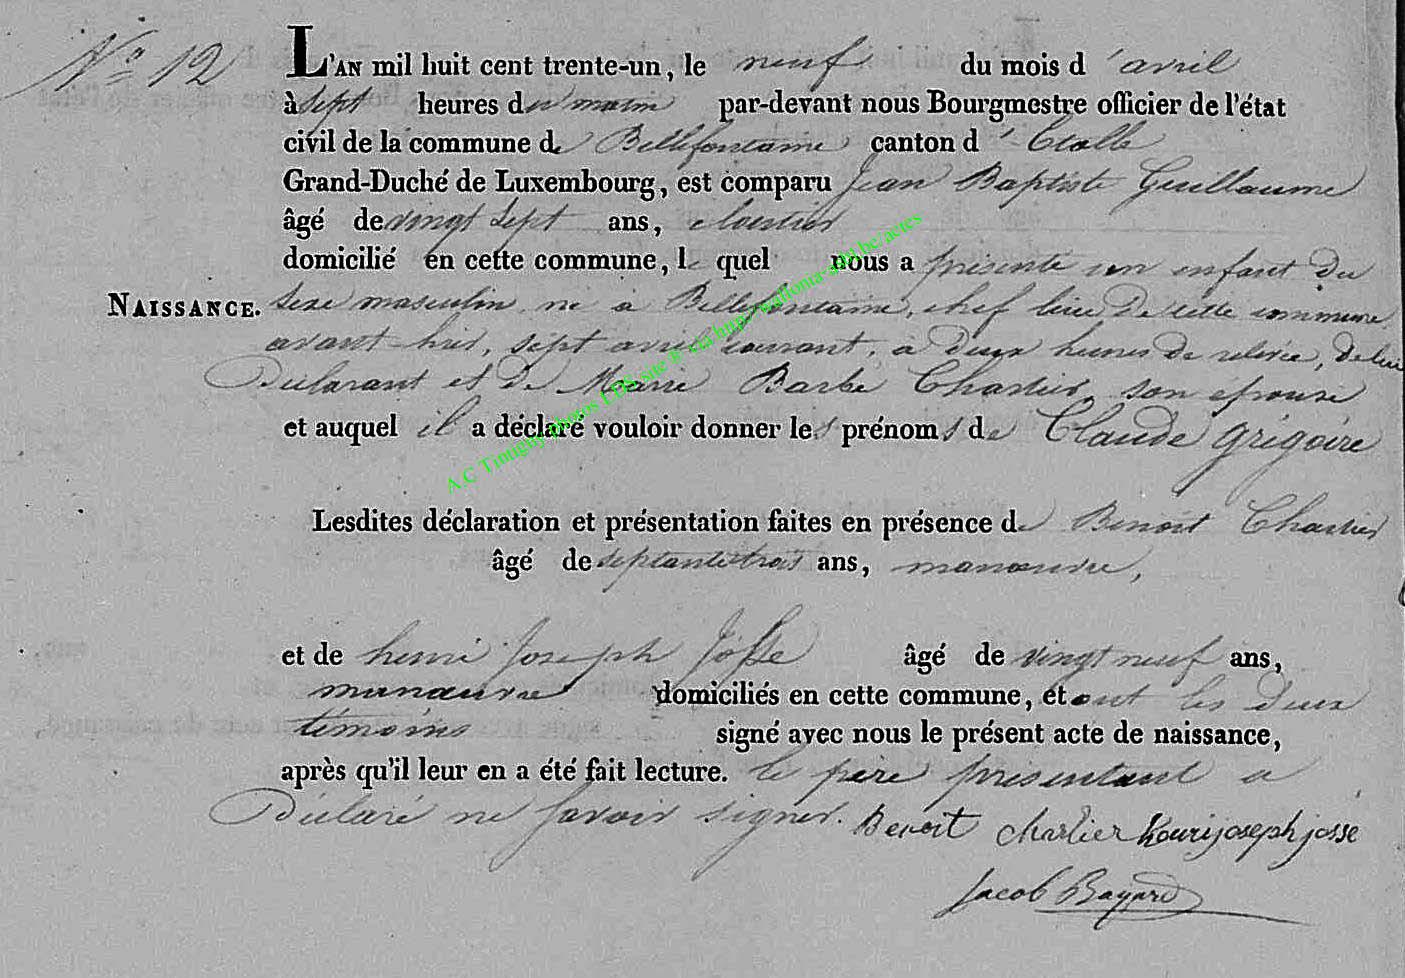 No 12
L'AN mil huit cent trente-un, le neuf du mois d'avril
à sept heures du matin par-devant nous Bourgmestre officier de l'état
civil de la commune de Bellefontaine canton d'Etalle
Grand-Duché de Luxembourg, est comparu Jean Baptiste Guillaume
âgé de vingt sept ans, cloutier
domicilié en cette commune, lequel nous a présenté un enfant du
NAISSANCE. sexe masculin né à Bellefontaine, chef lieu de cette commune
avant hier, sept avril courant, à deux heures de relevée, de lui
Déclarant et de Marie Barbe Charlier, son épouse
et auquel il a déclaré vouloir donner les prénoms de Claude grégoire
Lesdites déclaration et présentation faites en présence de Benoit Charlier
âgé de septante trois ans, manœuvre,
et de henri Joseph Josse âgé de vingt neuf ans,
manœuvre domiciliés en cette commune, et ont les deux
témoins signé avec nous le présent acte de naissance,
après qu'il leur en a été fait lecture. le père présentant a
Déclaré ne savoir signer. Benoit Charlier henri joseph josse
Jacob Bayard
A.C Tintigny photos LDS site ® via http://wallonia-asbl.be/actes